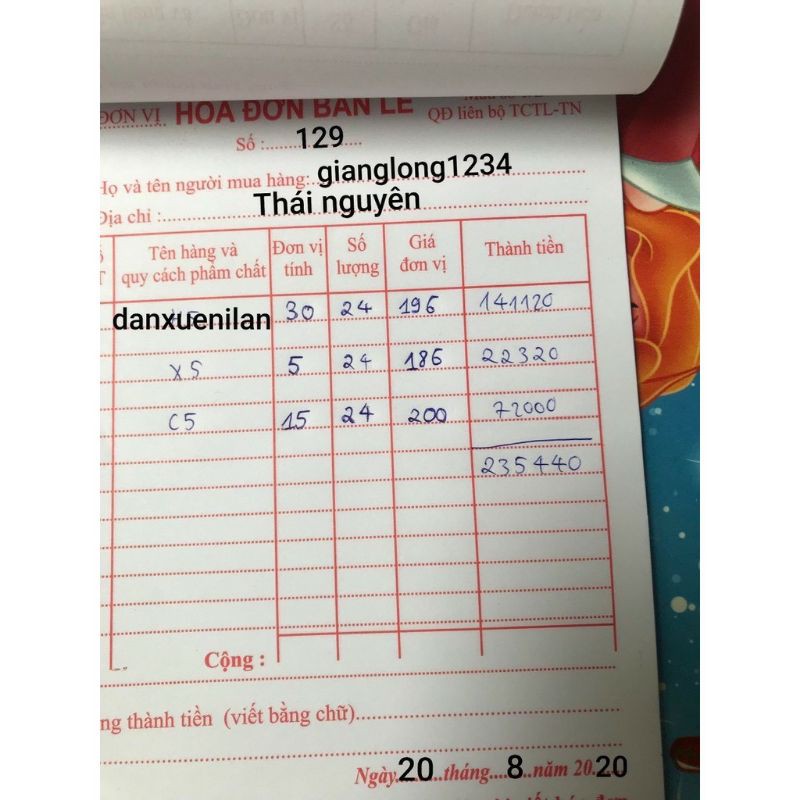 ĐƠN VỊ HOÁ ĐƠN BÁN LẺ
QĐ liên bộ TCTL-TN
Số :......129......
Họ và tên người mua hàng:..gianglong1234
Địa chỉ :..........Thái nguyên..........
Tên hàng và quy cách phẩm chất Đơn vị tính Số lượng Giá đơn vị Thành tiền
danxuenilan 30 24 196 141120
X5 5 24 186 22320
C5 15 24 200 72000
235440
Cộng :
ng thành tiền (viết bằng chữ)..........
Ngày..20...tháng....8..năm 20..20